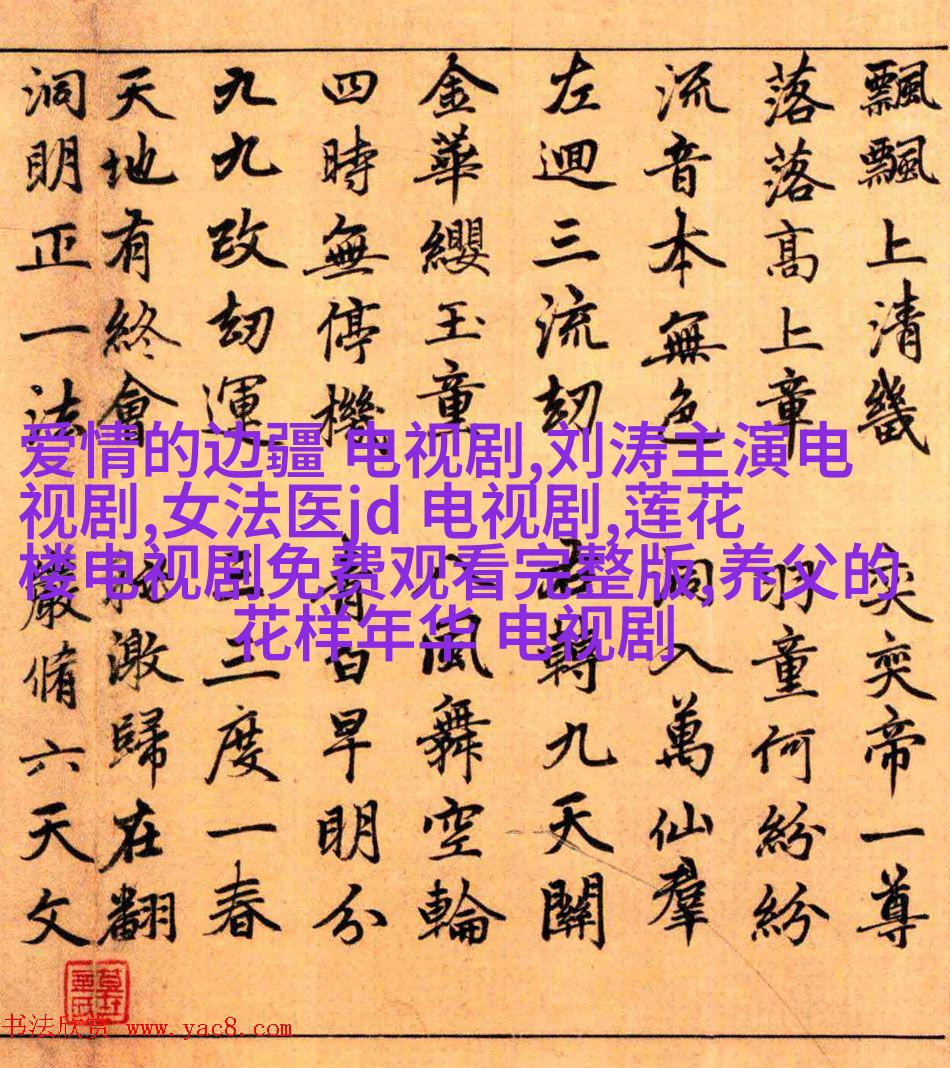 飄飄上清畿 奕奕帝一尊
落落高上章 明童何紛紛
流音本無色 入萬仙羣
左迴三流劫 轉九天關
金華纓玉童 八風舞空輪
四時無停機 早明分
九九改劫運 三三度一春
天地有終會 激歸在翻
洞明正一法 嚴脩六天文
爱情的边疆 电视剧,刘涛主演电
视剧,女法医jd 电视剧,莲花
楼电视剧免费观看完整版,养父的
花样年华 电视剧
书法欣赏 www.yac8.com